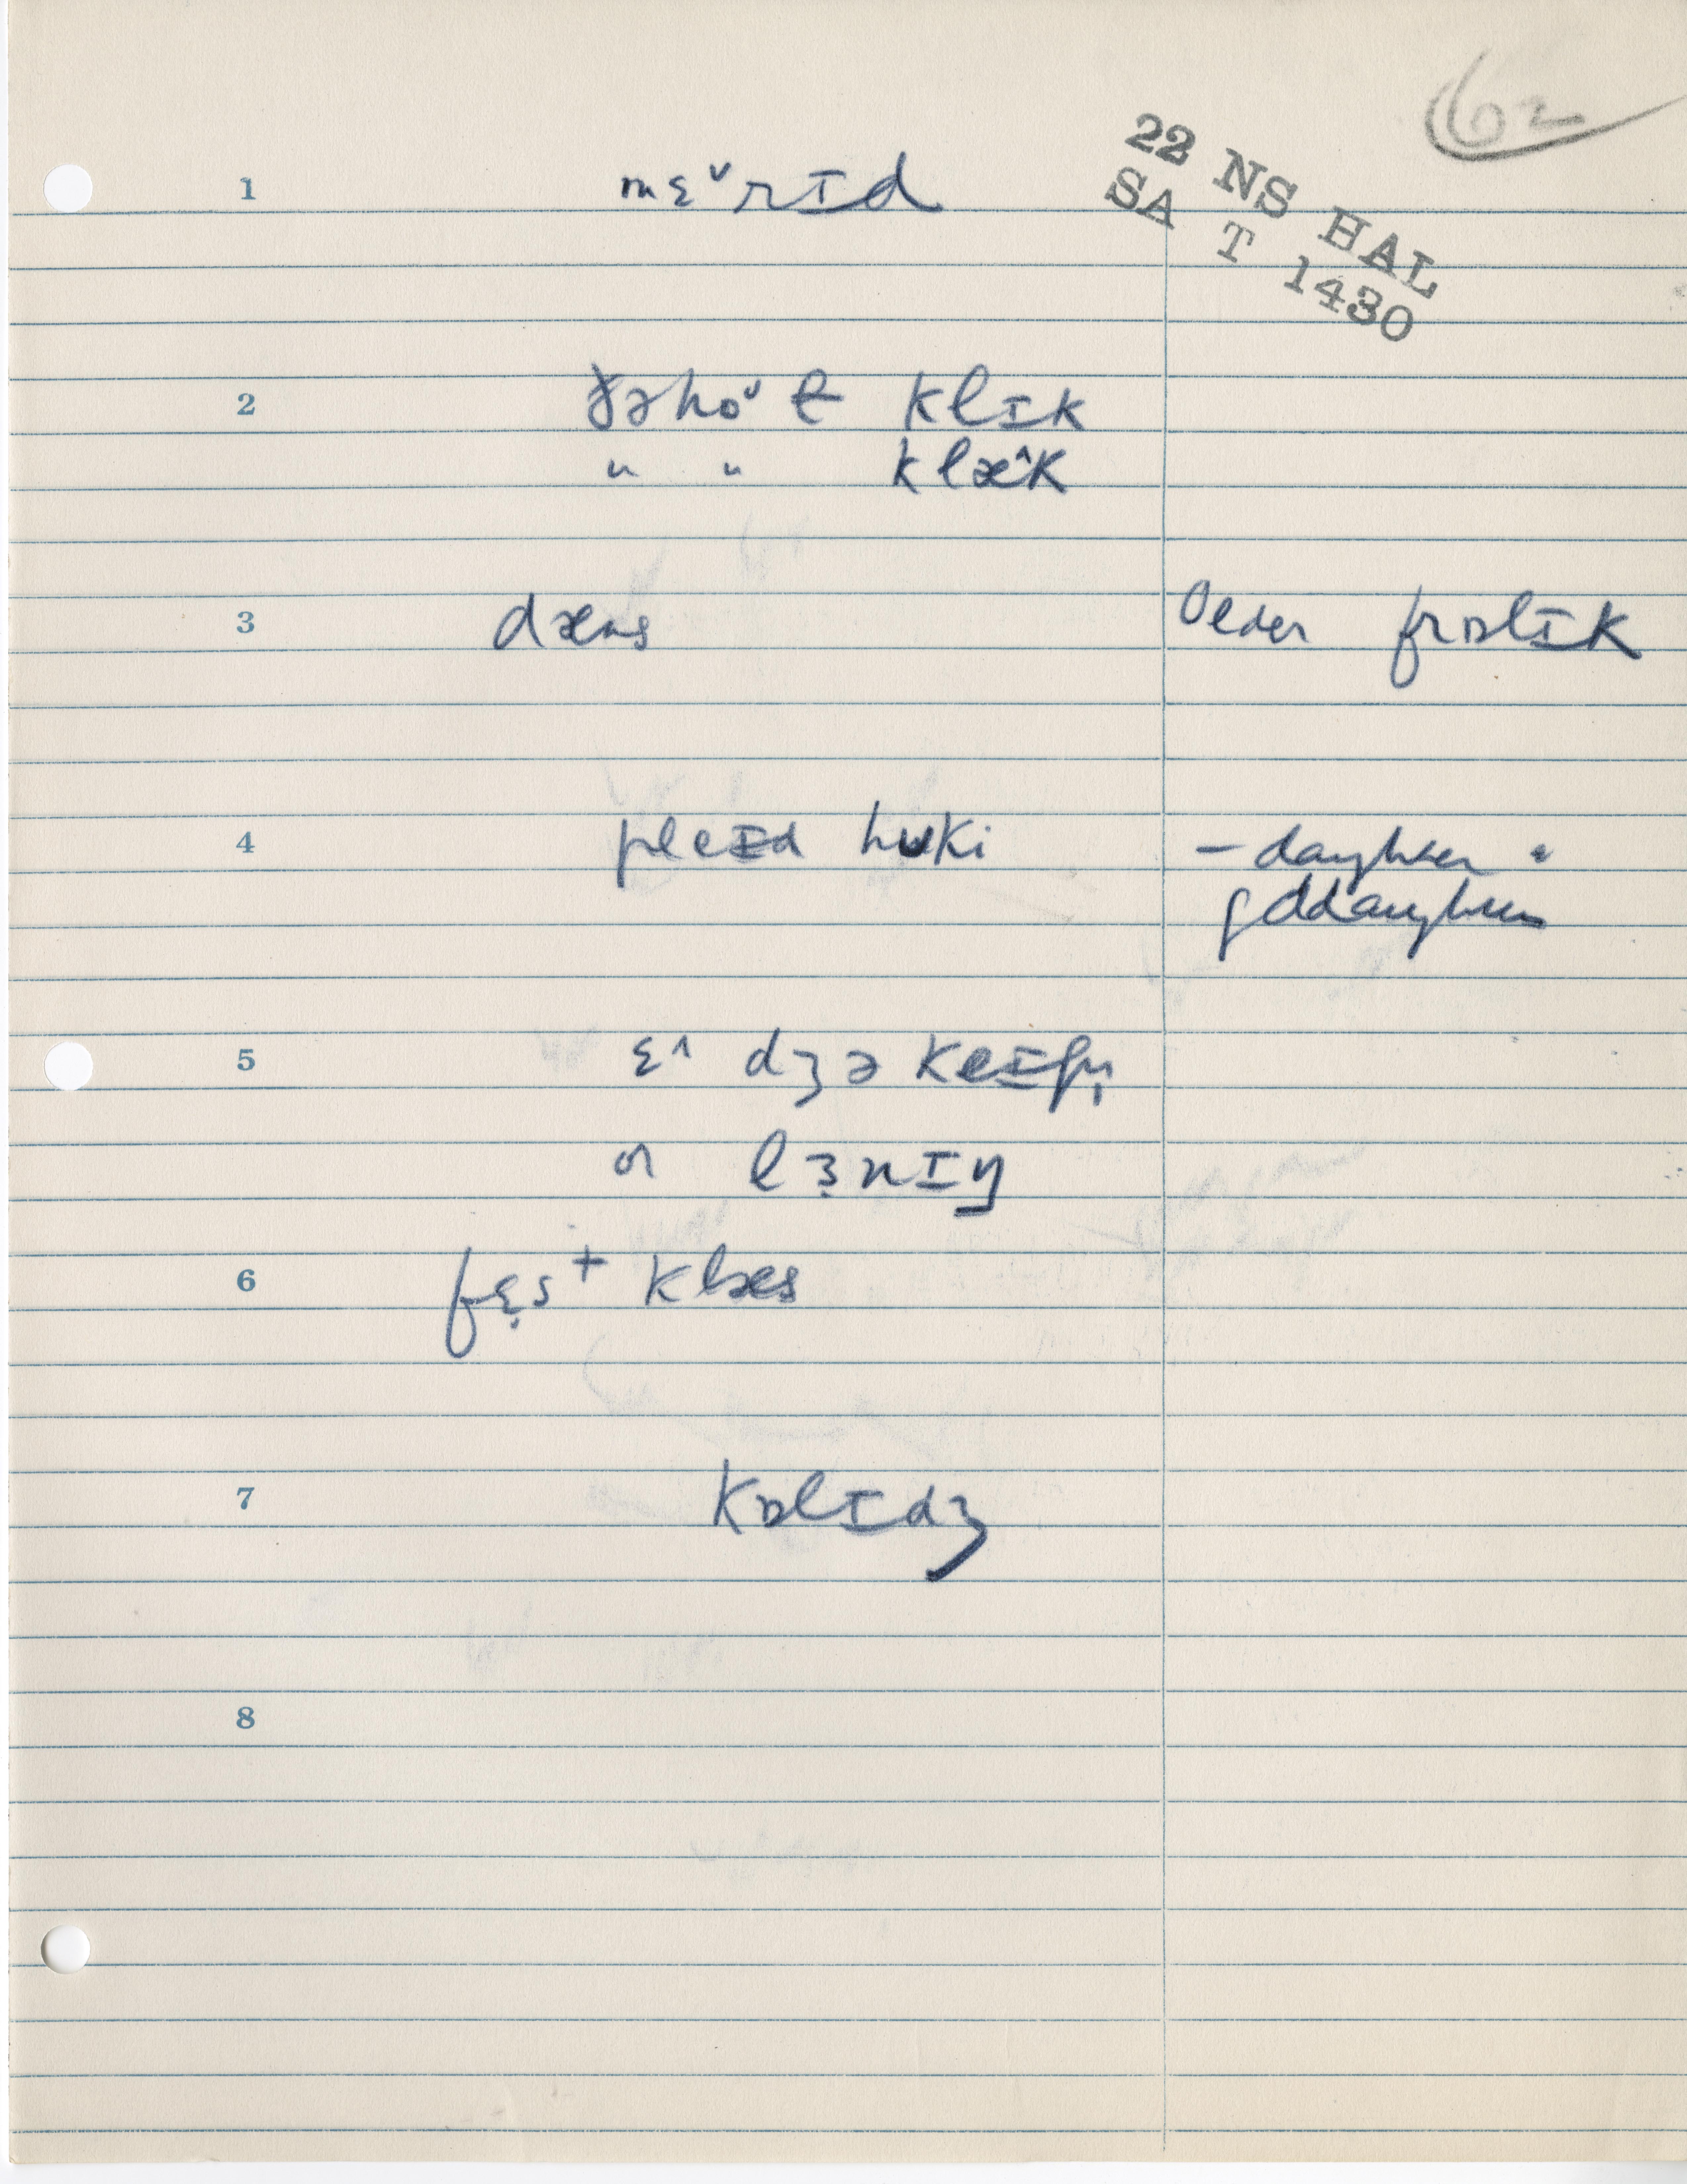 62
22 NS HAL
SA T 1430
1 mɛ˅rɪd
2 ðəho˅ɫ klɪk
" " klæ^k
3 dæns Older frɒlɪk
4 pleɪd hʊki – daughter &
goddaughter
5 ɛ^dʒəkeɪʃn̩
or lɜ̣nɪŋ
6 fɛ̣s+ klæs
7 kɒlɪdʒ
8